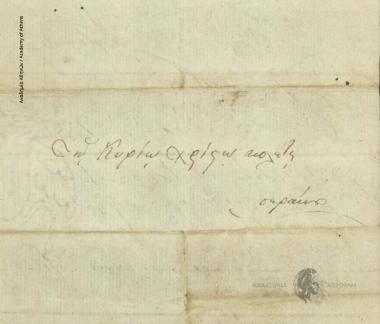 Ακαδημία Αθηνών / Academy of Athens
Τῷ Κυρίῳ Χρίστῳ κολέτῃ
ΑΚΑΔΗΜΙΑ ΑΘΗΝΩΝ